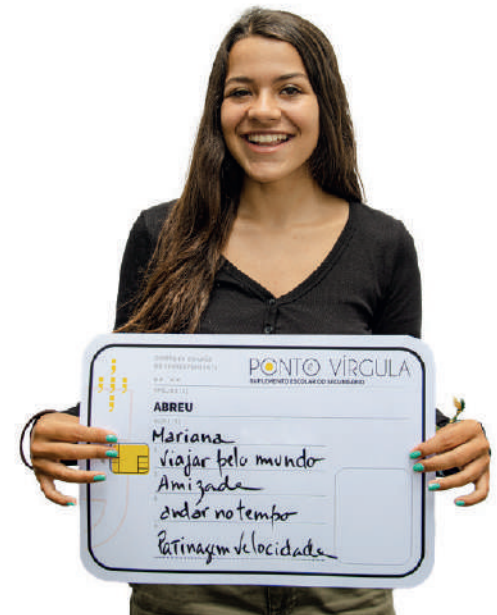 PONTO E VÍRGULA
SUPLEMENTO ESCOLAR DO SECUNDÁRIO
ABREU
Mariana
viajar pelo mundo
Amizade
andar no tempo
Patinagem Velocidade